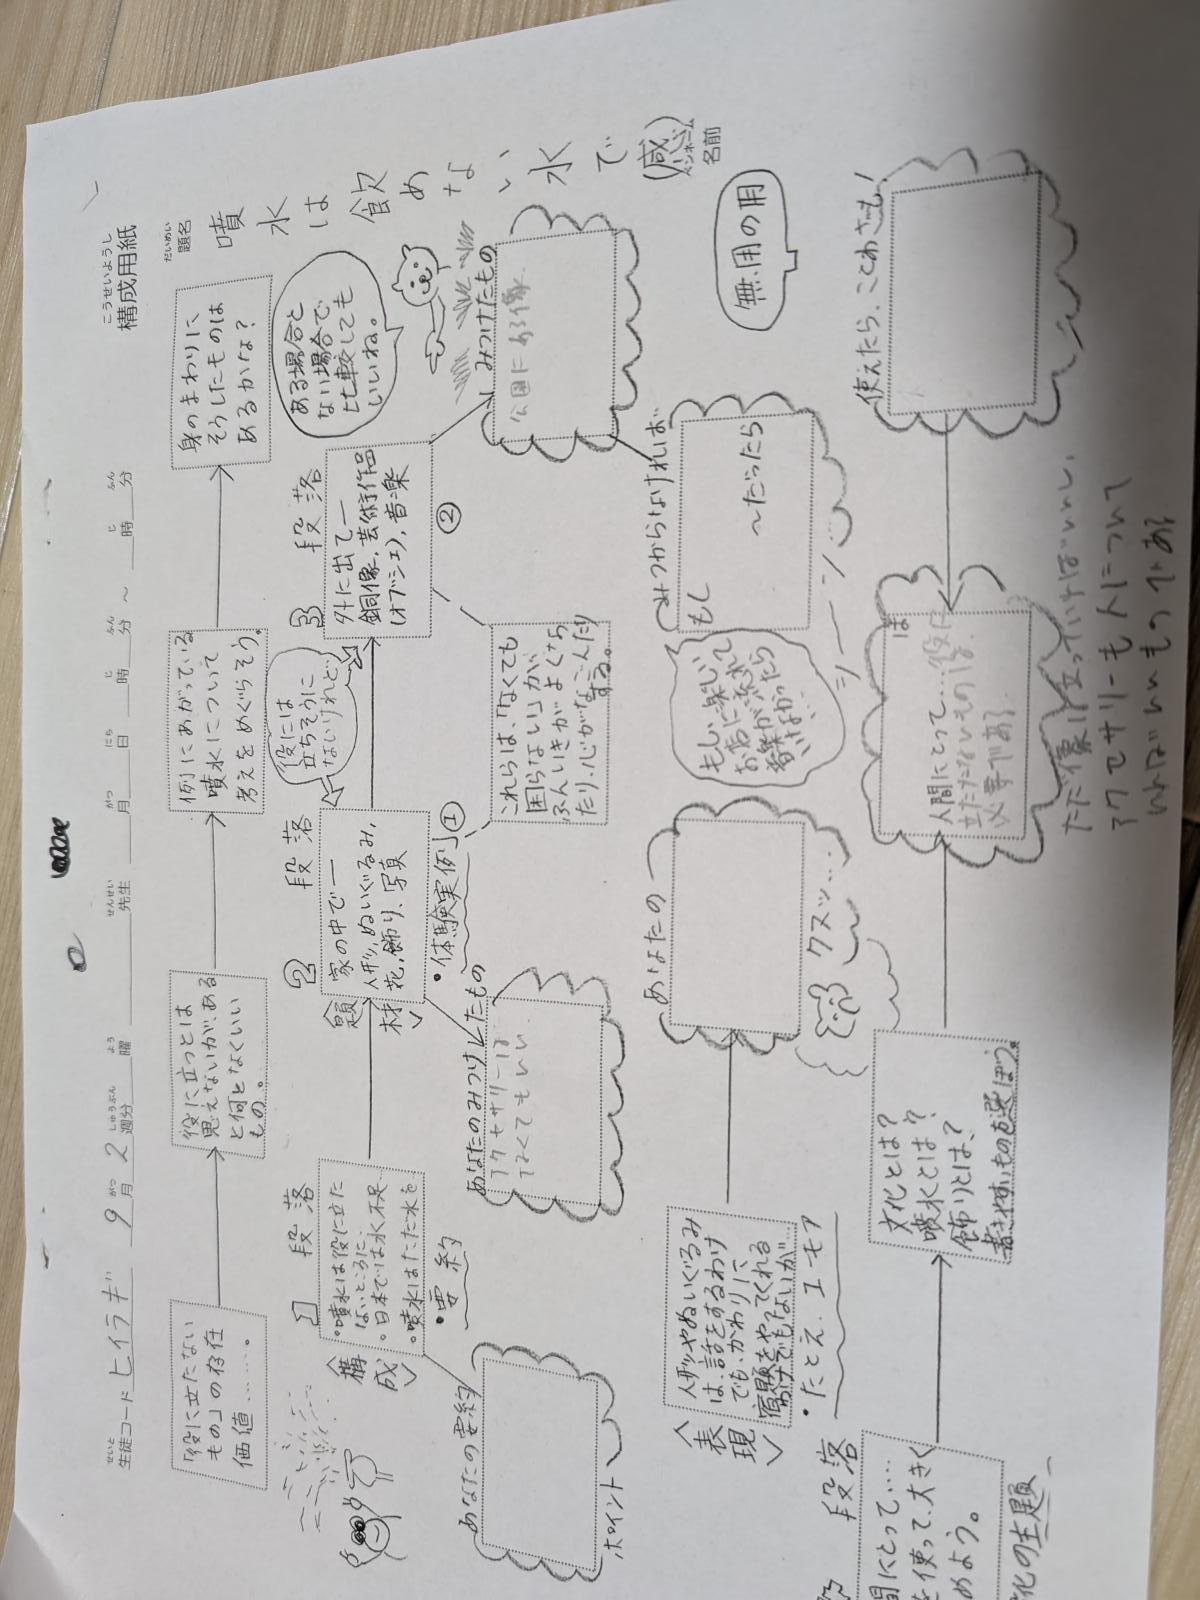 こうせいようし
構成用紙
せいと
生徒コード ヒイラギ 9月 2週分 曜 先生 月 日 時 分 ～ 時 分
がつ しゅうぶん よう せんせい がつ にち じ ふん じ ふん
だいめい
題名
噴水は飲めない水で
(感)
ペンネーム
名前
「役に立たない
もの」の存在
価値……。
役に立つとは
思えないが、ある
と何となくいい
もの。
例にあがっている
噴水について
考えをめぐらそう。
身のまわりに
そうしたものは
あるかな?
〈構成〉
1段落
・噴水は役に立た
ないところに、
・日本では水不足…
・噴水はただ水を
・要約
〈題材〉
2段落
家の中で―
人形、ぬいぐるみ、
花、飾り、写真
・体験実例 ①
役には
立ちそうに
ないけれど
3段落
外に出て―
銅像、芸術作品
(オブジェ)、音楽
②
ある場合と
ない場合で
比較しても
いいね。
これらは、「なくても
困らない」が、
ふんいきがよくなっ
たり、心がなごんだり
する。
あなたの要約
ポイント
あなたのみつけたもの
アクセサリーは
なくてもいい
みつけたもの
公園にある像
みつからなければ
もし
～だったら
〈表現〉
人形やぬいぐるみ
は、話をするわけ
でも、かわりに
宿題をやってくれる
わけでもないが…
・たとえ、ユーモア
あなたの
クスッ…
もし、楽しい
お店に流れて
音楽が
いなかったら
シーーン
無用の用
段落
間にとって……
を使って、大きく
めよう。
化の主題
文化とは?
噴水とは?
飾りとは、?
書きやすいものを選ぼう。
は
人間にとって…役に
立たないものは、
必要である
使えたら、ことわざも!
アクセサリーも人について